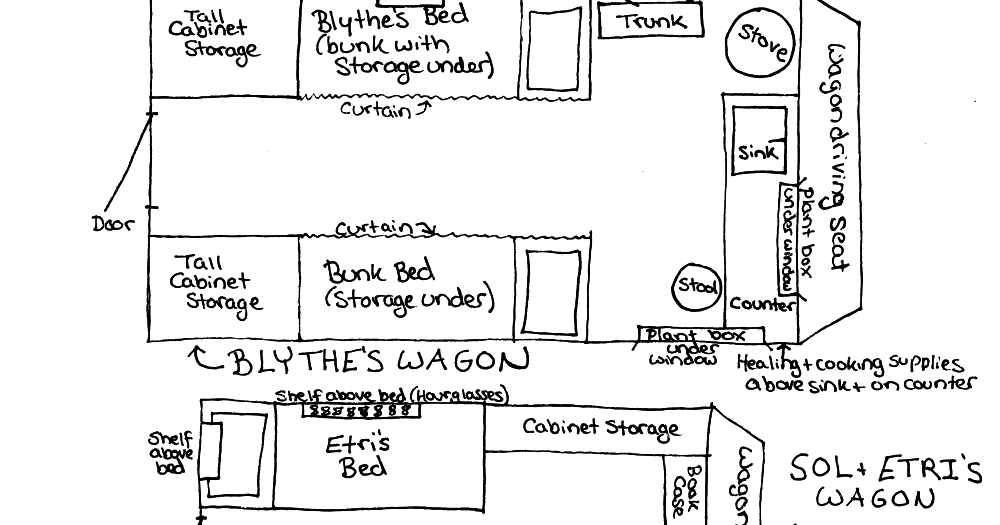 Tall
Cabinet
Storage
Blythe's Bed
(bunk with
Storage under)
Trunk
Stove
Curtain
Wagon driving seat
Sink
Plant box
under window
Door
Curtain
Tall
Cabinet
Storage
Bunk Bed
(Storage under)
Stool
Counter
Plant box
under
window
BLYTHE'S WAGON
Healing + cooking supplies
above sink + on counter
Shelf above bed (Hourglasses)
Shelf
above
bed
Etri's
Bed
Cabinet Storage
Book
Case
Wagon
SOL + ETRI'S
WAGON